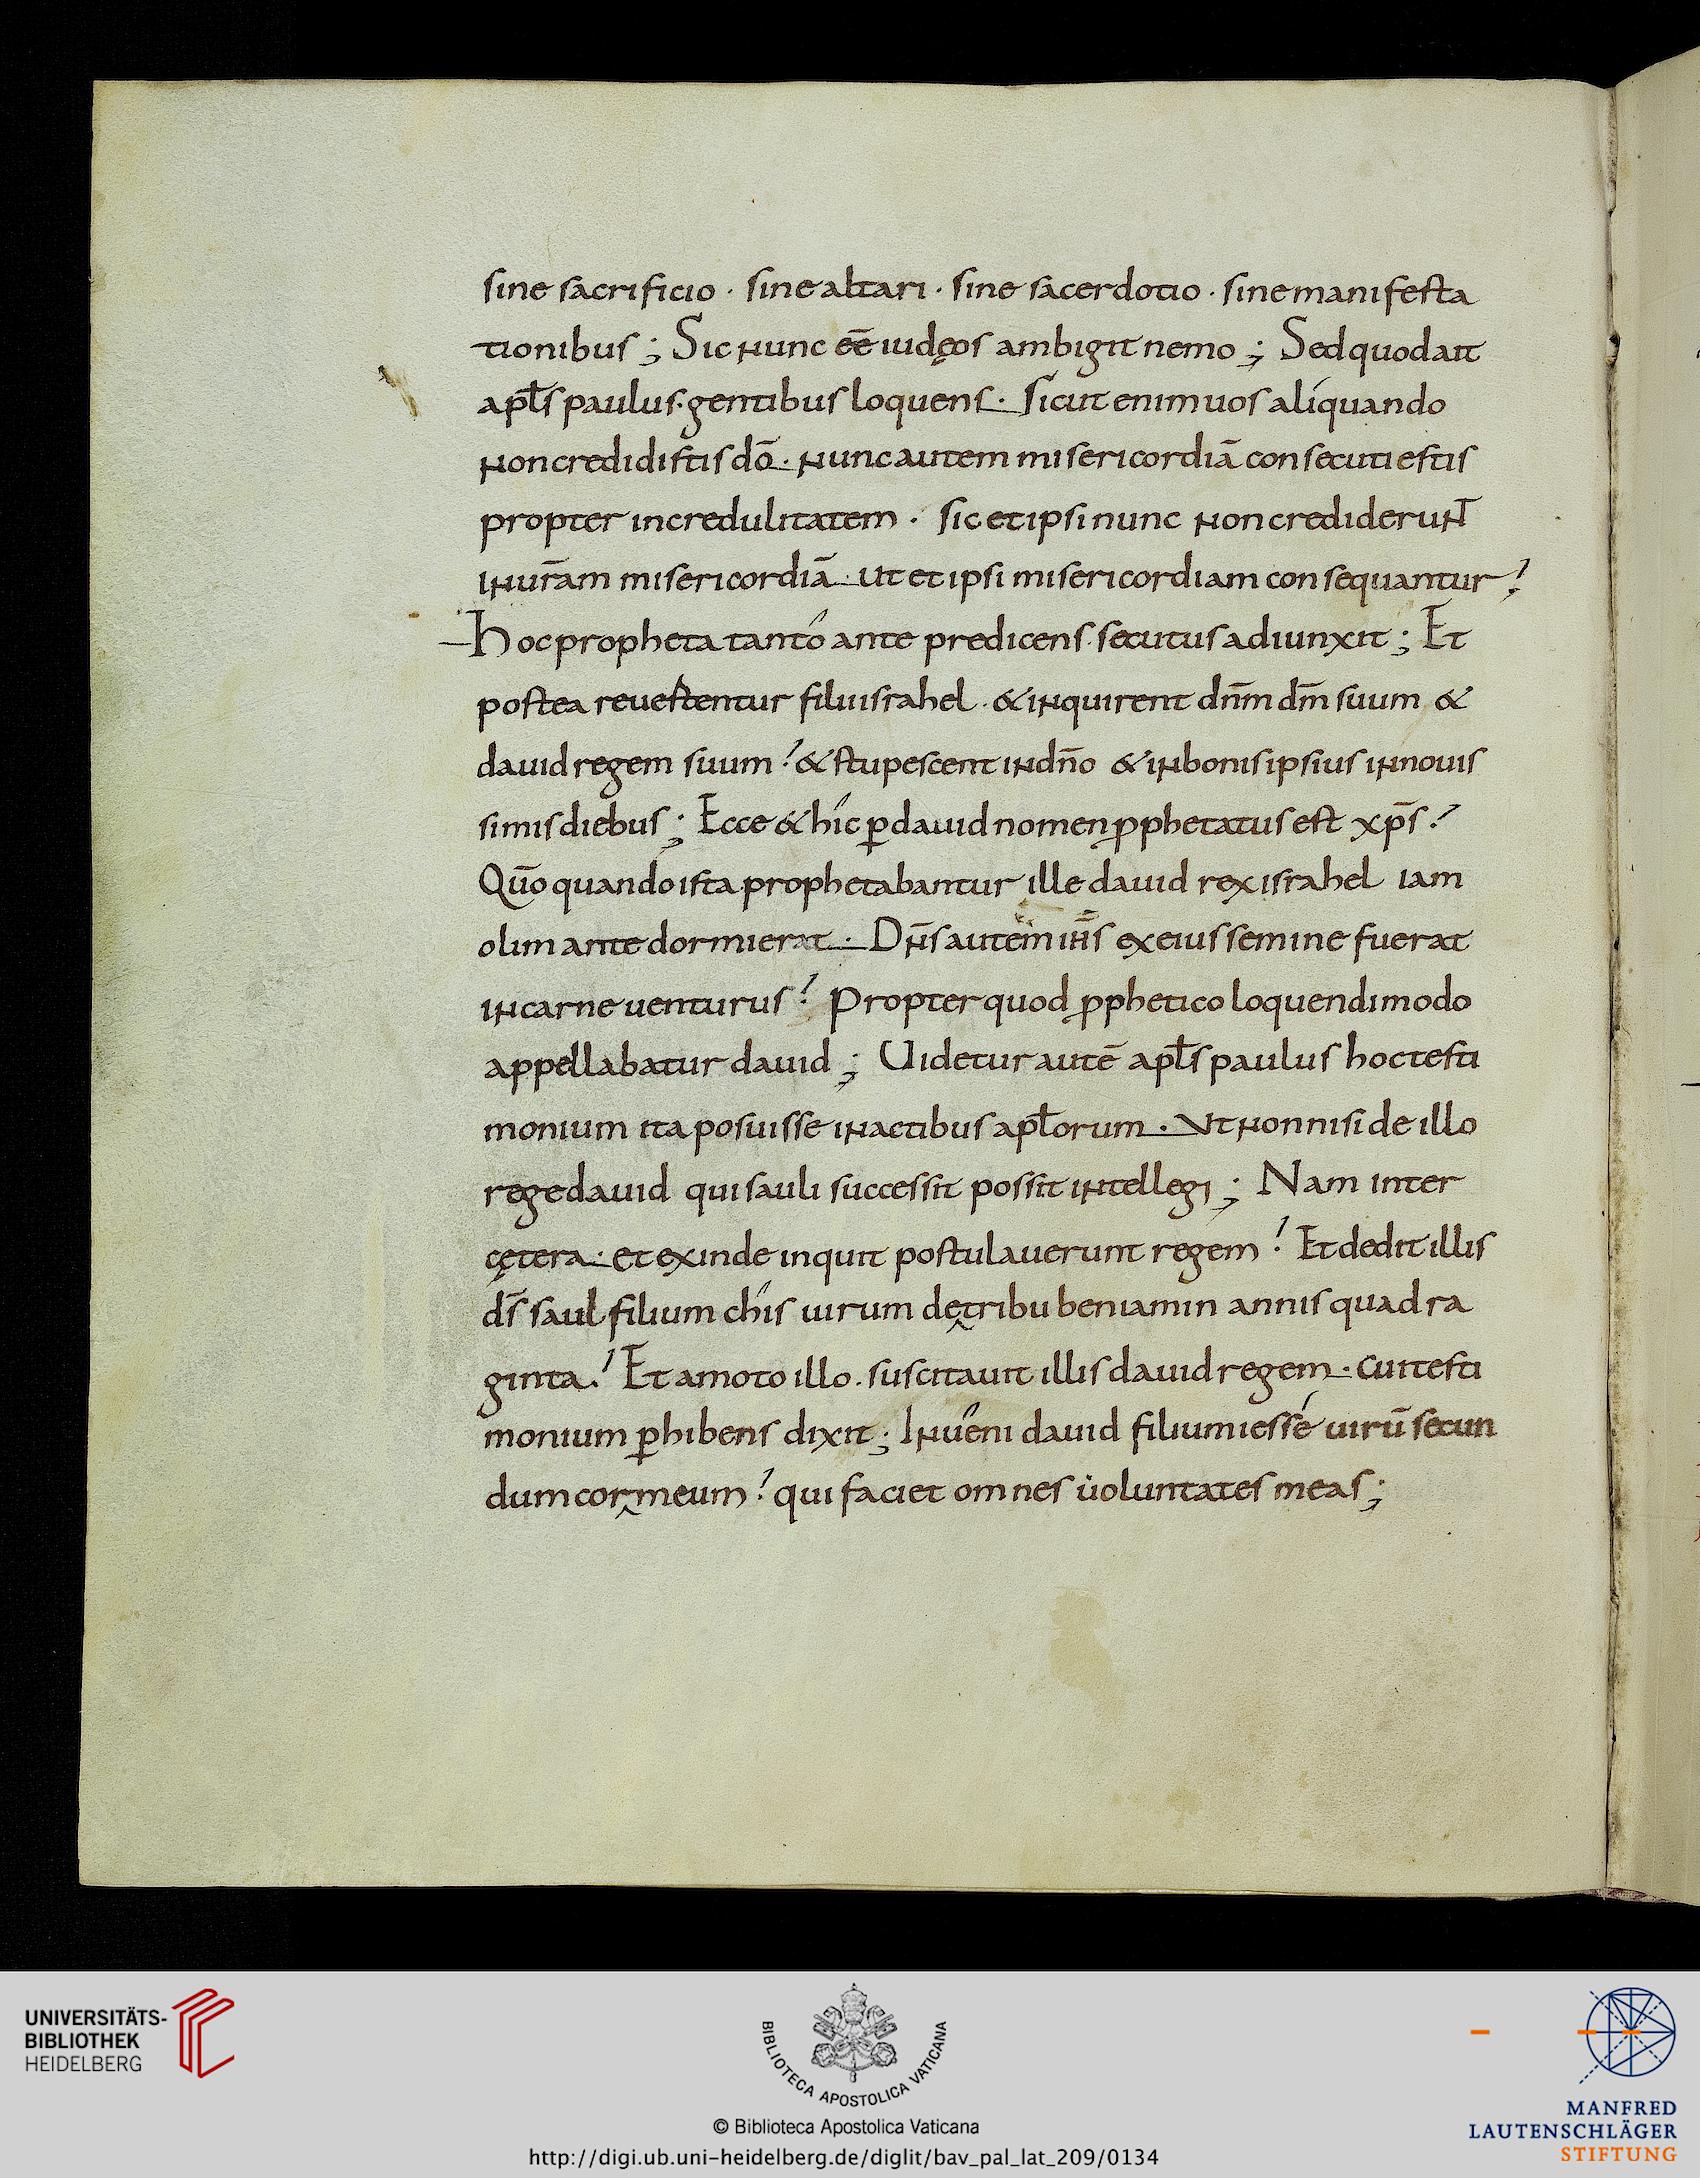 sine sacrificio · sine altari · sine sacerdotio · sine manifesta
tionibus ; Sic nunc eē iudęos ambigit nemo ; Sed quod ait
apl̄s paulus · gentibus loquens · Sicut enim uos aliquando
non credidistis dō · nunc autem misericordiā consecuti estis
propter incredulitatem · sic et ipsi nunc non crediderunt
in ur̄am misericordiā · ut et ipsi misericordiam consequantur?
Hoc propheta tantó ante predicens · secutus adiunxit ; Et
postea reuertentur filii israhel · & inquirent dn̄m dm̄ suum &
dauid regem suum? & stupescent in dn̄o & in bonis ipsius in nouis
simis diebus ; Ecce & híc ꝑ dauid nomen ꝓphetatus est xp̄s?
Qūo quando ista prophetabantur ille dauid rex israhel iam
olim ante dormierat · Dn̄s autem ih̄s ex eius semine fuerat
in carne uenturus? Propter quod ꝓphetico loquendi modo
appellabatur dauid ; Uidetur autē apl̄s paulus hoc testi
monium ita posuisse in actibus apl̄orum · Ut non nisi de illo
rege dauid qui sauli successit possit intellegi ; Nam inter
cętera · et exinde inquit postulauerunt regem? Et dedit illis
ds̄ saul filium chís uirum de tribu beniamin annis quadra
ginta? Et amoto illo · suscitauit illis dauid regem · cui testi
monium ꝑhibens dixit ; Inuêni dauid filium iessé uirū secun
dum cor meum? qui faciet omnes uoluntates meas ;
UNIVERSITÄTS-
BIBLIOTHEK
HEIDELBERG
BIBLIOTECA APOSTOLICA VATICANA
© Biblioteca Apostolica Vaticana
http://digi.ub.uni-heidelberg.de/diglit/bav_pal_lat_209/0134
MANFRED
LAUTENSCHLÄGER
STIFTUNG